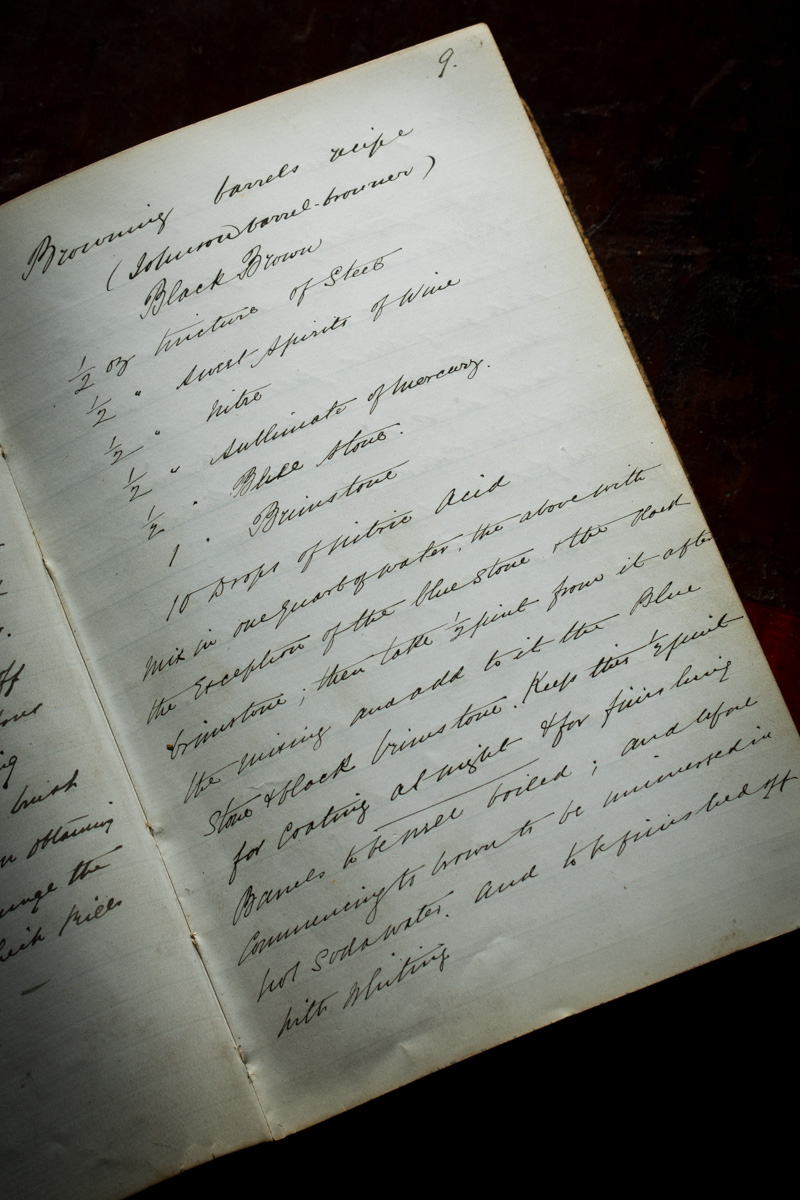 9.
Browning barrels recipe
(Johnson barrel-browner)
Black Brown
½ oz tincture of Steel
½ " Sweet Spirits of Wine
½ " Nitre
½ " Sublimate of Mercury.
½ " Blue Stone.
1 " Brimstone
10 Drops of Nitric Acid
Mix in one Quart of water, the above with
the Exception of the blue Stone & the black
brimstone; then take ½ pint from it after
the mixing and add to it the Blue
Stone & black brimstone. Keep this ½ pint
for Coating at night & for finishing
Barrels to be well boiled; and before
Commencing to brown to be immersed in
hot Soda water. and to be finished off
with Whiting
off
brush
obtaining
the
Kills